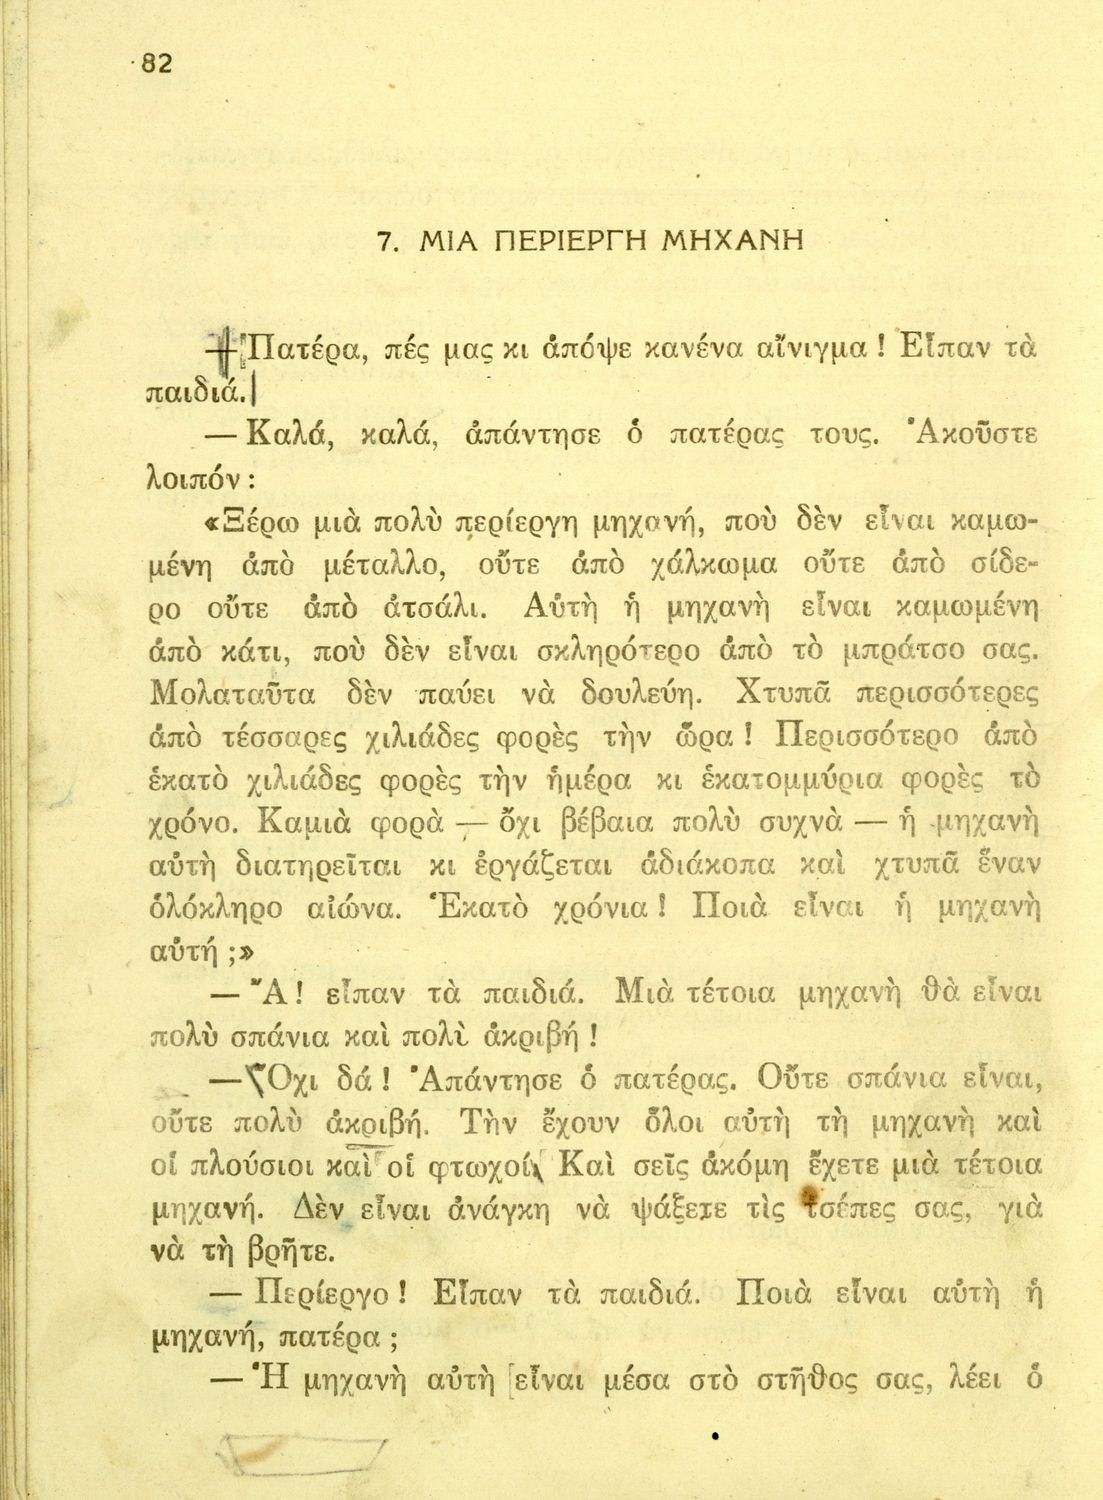 82
7. ΜΙΑ ΠΕΡΙΕΡΓΗ ΜΗΧΑΝΗ
— Πατέρα, πές μας κι ἀπόψε κανένα αἴνιγμα ! Εἶπαν τὰ
παιδιά.
— Καλά, καλά, ἀπάντησε ὁ πατέρας τους. Ἀκοῦστε
λοιπόν :
«Ξέρω μιὰ πολὺ περίεργη μηχανή, ποὺ δὲν εἶναι καμω-
μένη ἀπὸ μέταλλο, οὔτε ἀπὸ χάλκωμα οὔτε ἀπὸ σίδε-
ρο οὔτε ἀπὸ ἀτσάλι. Αὐτὴ ἡ μηχανὴ εἶναι καμωμένη
ἀπὸ κάτι, ποὺ δὲν εἶναι σκληρότερο ἀπὸ τὸ μπράτσο σας.
Μολαταῦτα δὲν παύει νὰ δουλεύη. Χτυπᾶ περισσότερες
ἀπὸ τέσσαρες χιλιάδες φορὲς τὴν ὥρα ! Περισσότερο ἀπὸ
ἑκατὸ χιλιάδες φορὲς τὴν ἡμέρα κι ἑκατομμύρια φορὲς τὸ
χρόνο. Καμιὰ φορὰ — ὄχι βέβαια πολὺ συχνὰ — ἡ μηχανὴ
αὐτὴ διατηρεῖται κι ἐργάζεται ἀδιάκοπα καὶ χτυπᾶ ἕναν
ὁλόκληρο αἰώνα. Ἑκατὸ χρόνια ! Ποιὰ εἶναι ἡ μηχανὴ
αὐτή ;»
— Ἄ ! εἶπαν τὰ παιδιά. Μιὰ τέτοια μηχανὴ θὰ εἶναι
πολὺ σπάνια καὶ πολὺ ἀκριβή !
— Ὄχι δά ! Ἀπάντησε ὁ πατέρας. Οὔτε σπάνια εἶναι,
οὔτε πολὺ ἀκριβή. Τὴν ἔχουν ὅλοι αὐτὴ τὴ μηχανὴ καὶ
οἱ πλούσιοι καὶ οἱ φτωχοί. Καὶ σεῖς ἀκόμη ἔχετε μιὰ τέτοια
μηχανή. Δὲν εἶναι ἀνάγκη νὰ ψάξετε τὶς τσέπες σας, γιὰ
νὰ τὴ βρῆτε.
— Περίεργο ! Εἶπαν τὰ παιδιά. Ποιὰ εἶναι αὐτὴ ἡ
μηχανή, πατέρα ;
— Ἡ μηχανὴ αὐτὴ εἶναι μέσα στὸ στῆθος σας, λέει ὁ